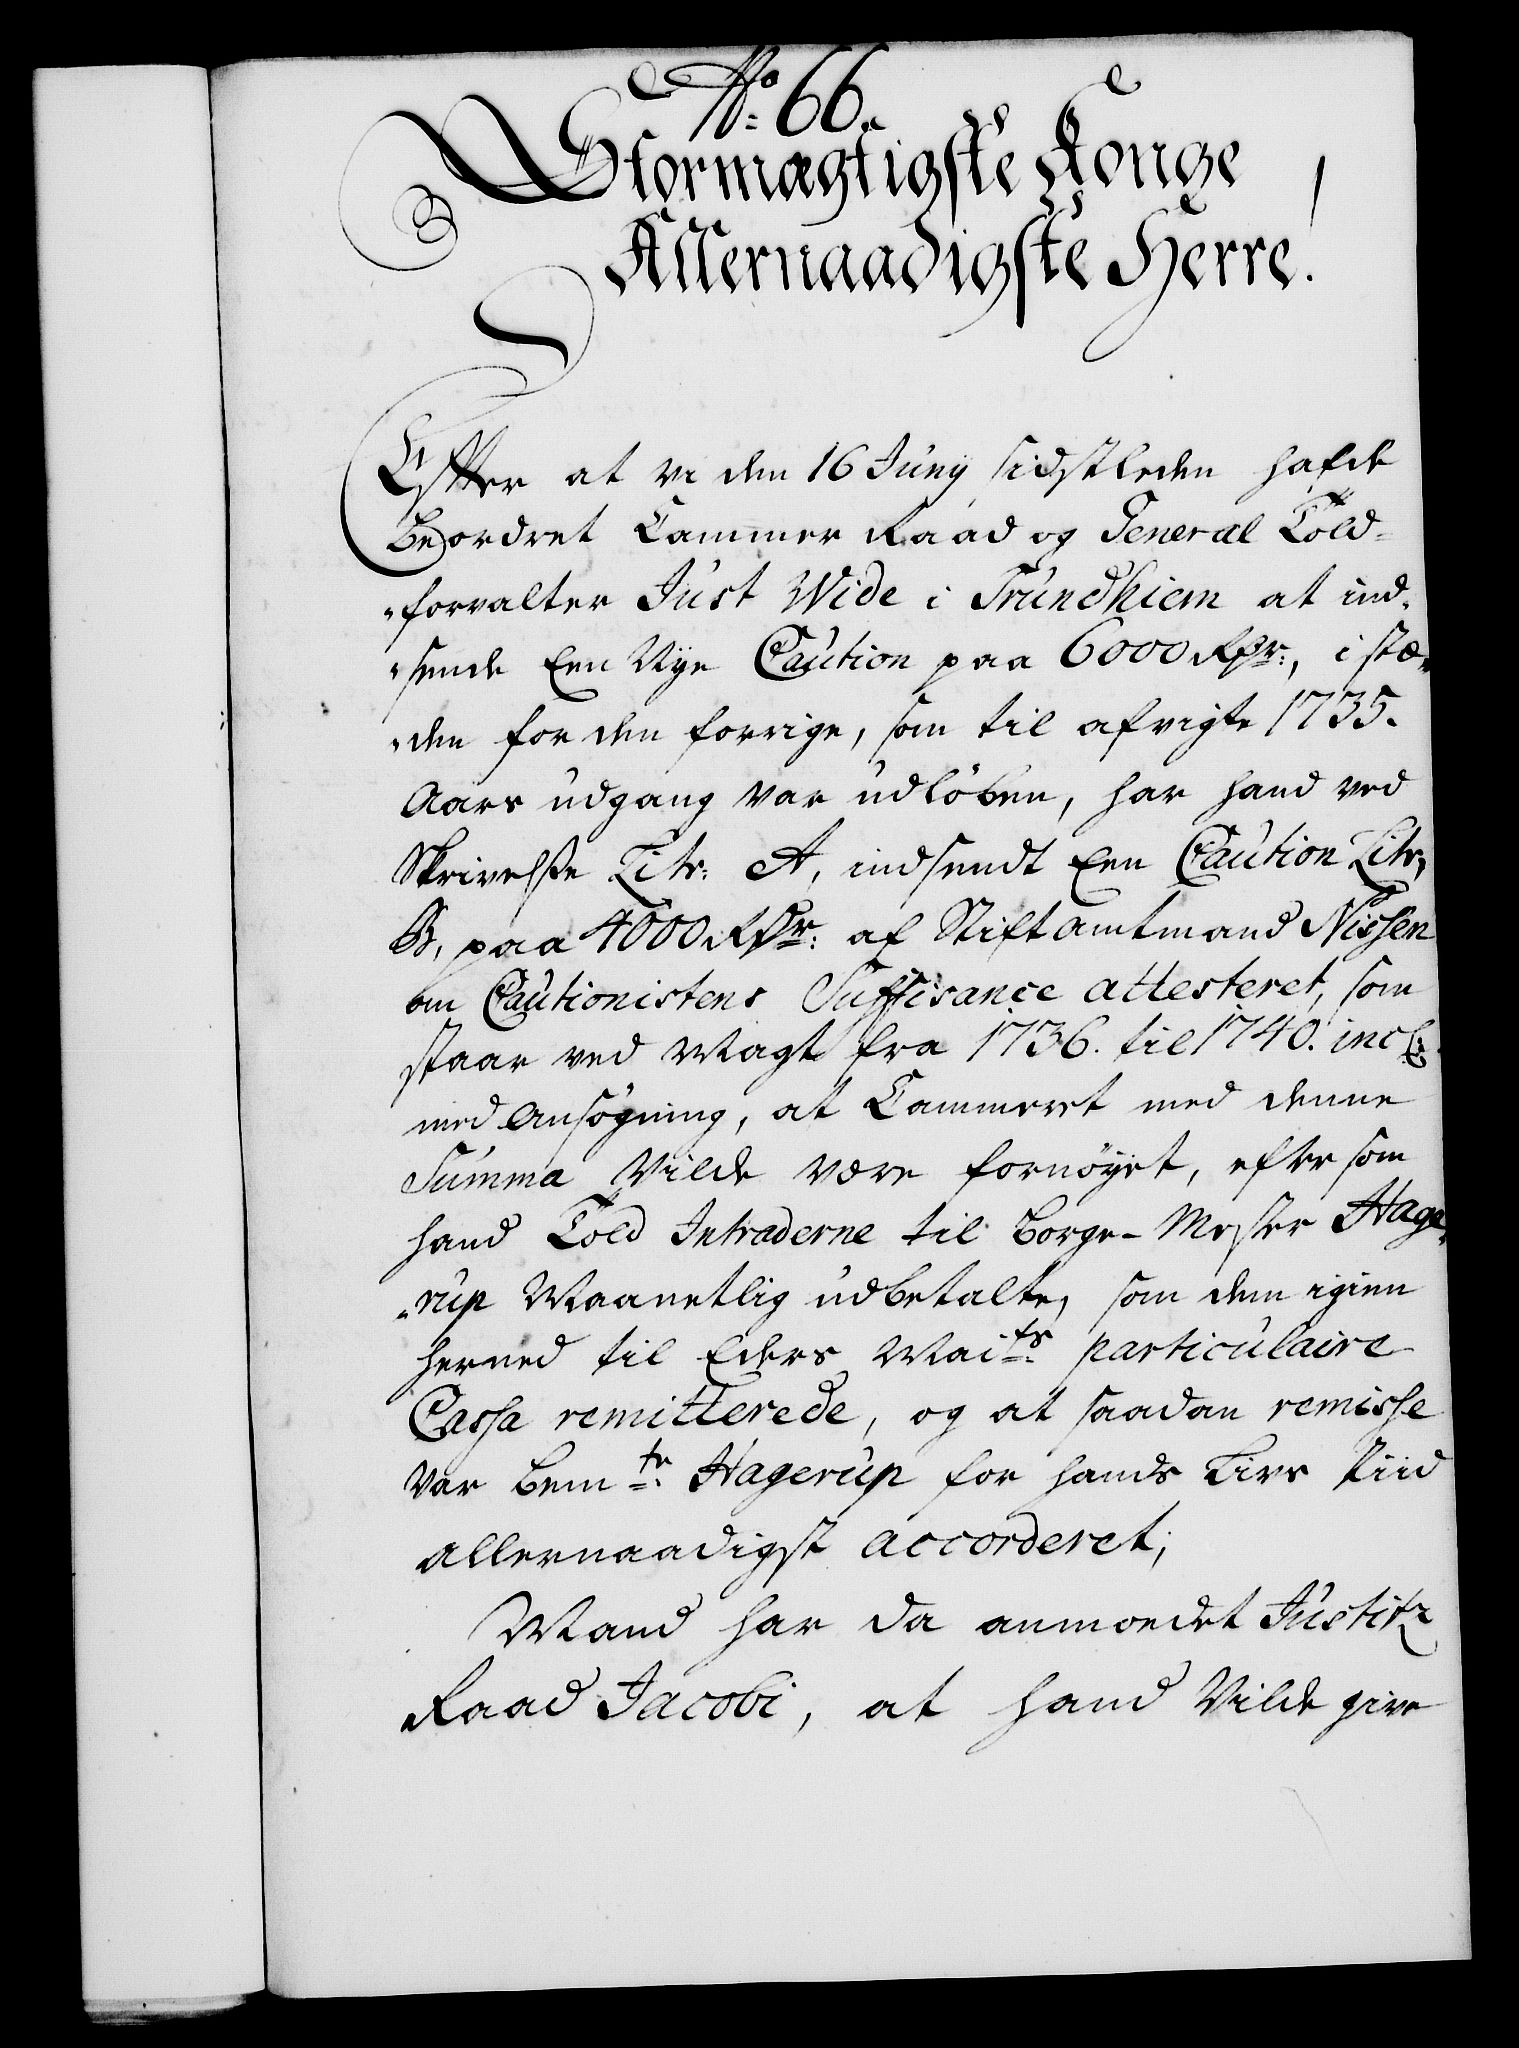 No: 66.
Stormægtigste Konge
Allernaadigste Herre!
Efter at vi den 16 Juny sidstleden hafde
Beordret Cammer Raad og General Told-
forvalter Just Wide i Trundhiem at ind-
sende Een Nye Caution paa 6000 Rdr:, i stæ-
den for den forrige, som til afvigte 1735.
Aars udgang var udløben, har hand ved
Skrivelse Litr: A, indsendt Een Caution Litr:
B, paa 4000 Rdr: af Stiftamtmand Nissen
om Cautionistens Suffisance attesteret, som
staar ved Magt fra 1736. til 1740. incl:
med Ansøgning, at Cammeret med denne
Summa Vilde være fornøyet, efter som
hand Told Intraderne til Borge-Mester Hage-
rup Maanetlig udbetalte, som dem igien
herned til Eders Maits: particulaire
Cassa remitterede, og at saadan remisse
var bemte: Hagerup for hands Livs Tiid
allernaadigst accorderet;
Mand har da anmodet Justitz
Raad Jacobi, at hand Vilde give